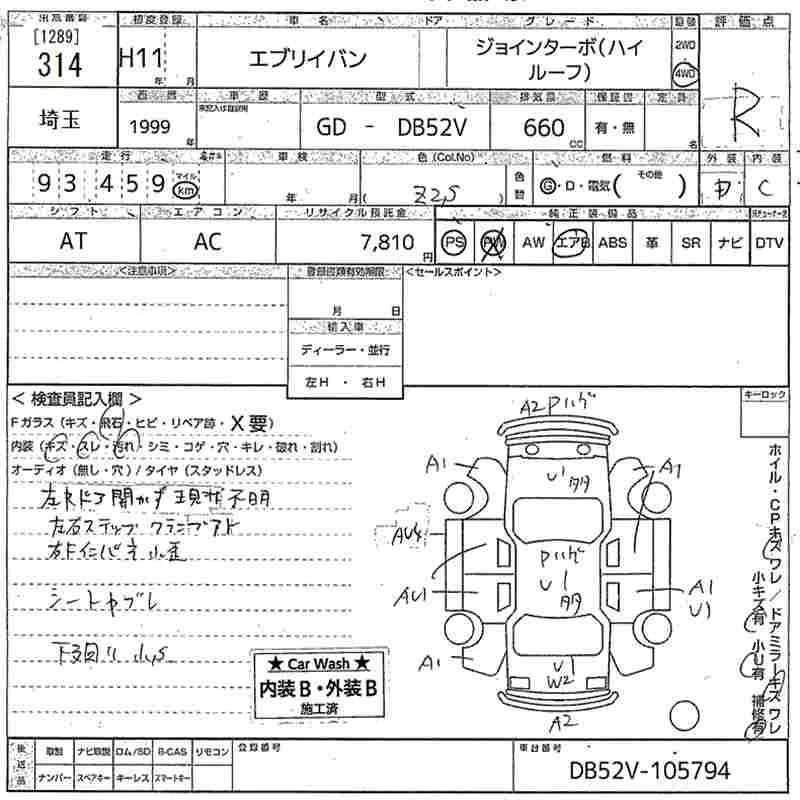 出品番号 初度登録 車名 ドア グレード 駆動 評価点
[1289]
314
H11
年 月
エブリイバン
ジョインターボ(ハイ
ルーフ)
2WD
4WD
R
埼玉
西暦 車歴 型式 排気量 保証書 定員
1999
年
GD - DB52V
660
CC
有・無
名
走行 車検 色(Col.No) 燃料 外装 内装
93459
マイル
km
年 月
( Z2S )
色替
G・D・電気( その他 )
D C
シフト エアコン リサイクル預託金 純正装備品
AT AC 7,810円 PS PW AW エアB ABS 革 SR ナビ DTV
<注意事項> 登録書類有効期限 <セールスポイント>
月 日
輸入車
ディーラー・並行
左H ・ 右H
キーロック
< 検査員記入欄 >
Fガラス (キズ・飛石・ヒビ・リペア跡・X要)
内装 (キズ・スレ・汚れ・シミ・コゲ・穴・キレ・破れ・割れ)
オーディオ (無し・穴) / タイヤ (スタッドレス)
左右ステップ
シート
下回り 小S
★ Car Wash ★
内装B・外装B
施工済
A2 Pハゲ
A1 A1
U1
AU4
Pハゲ
U1
AU1
A1
U1
A1
U1
W2
A2
ホイル・CPキズワレ/ドアミラーキズワレ
小キズ有 小U有 補修有
後送品
取説 ナビ取説 ロム/SD B-CAS リモコン
ナンバー スペアキー キーレス スマートキー
登録番号
車台番号
DB52V-105794